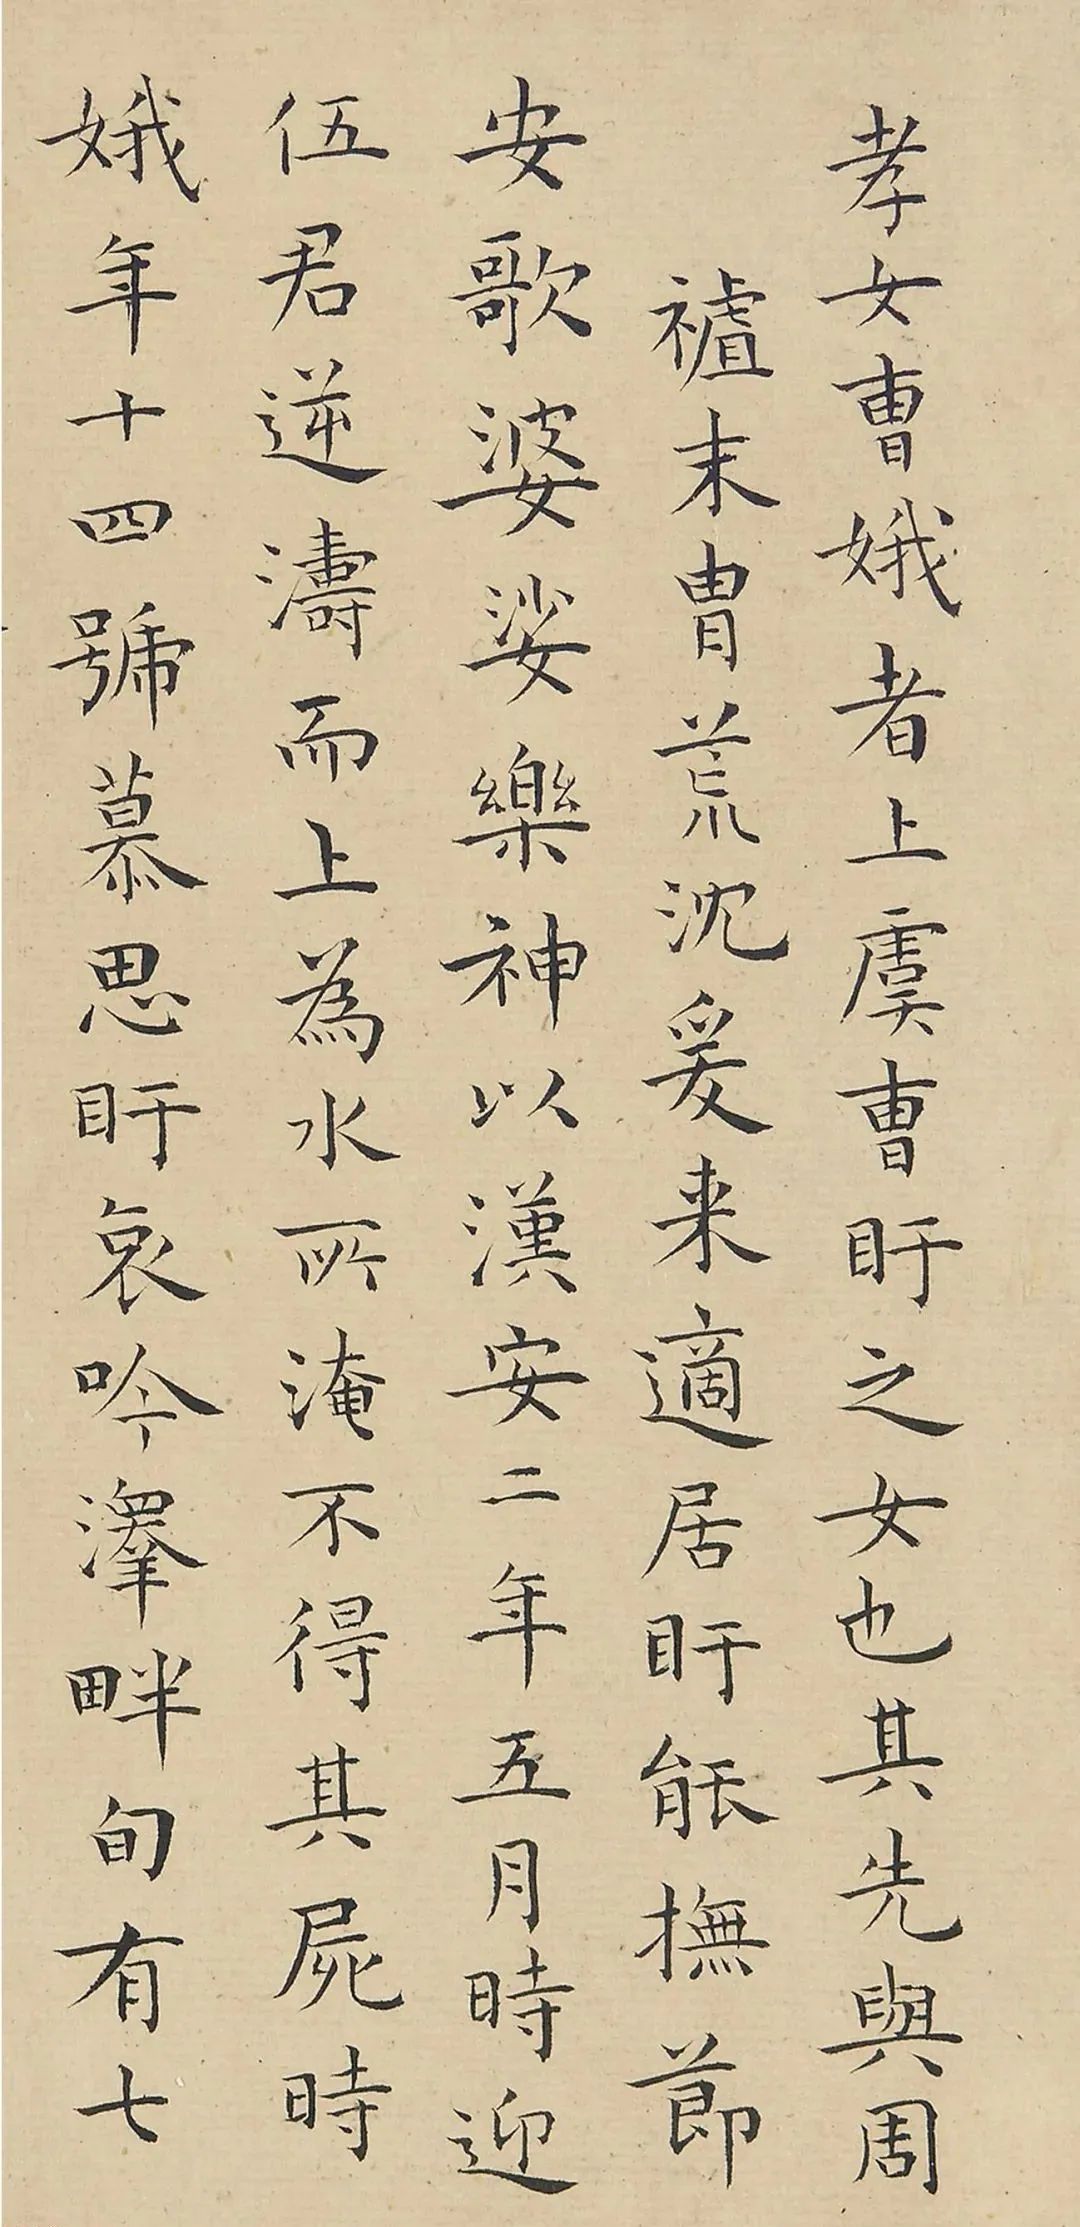 孝女曹娥者上虞曹盱之女也其先與周
禮末胄荒沈爰来適居盱能撫節
安歌婆娑樂神以漢安二年五月時迎
伍君逆濤而上為水所淹不得其屍時
娥年十四號慕思盱哀吟澤畔旬有七